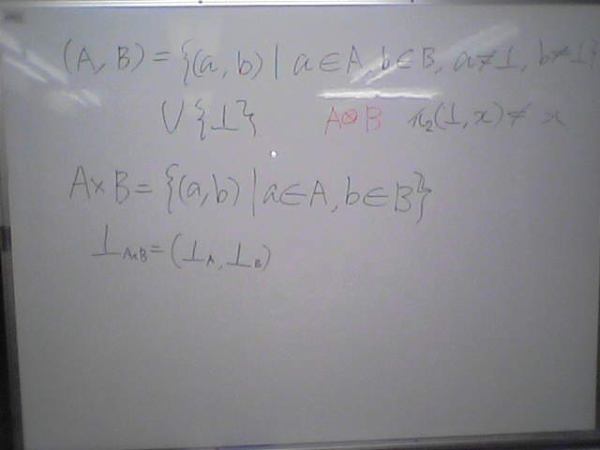 (A, B) = {(a, b) | a ∈ A, b ∈ B, a ≠ ⊥, b ≠ ⊥}
∪ {⊥} A⊗B π₂(⊥, x) ≠ x
A×B = {(a, b) | a ∈ A, b ∈ B}
⊥A×B = (⊥A, ⊥B)